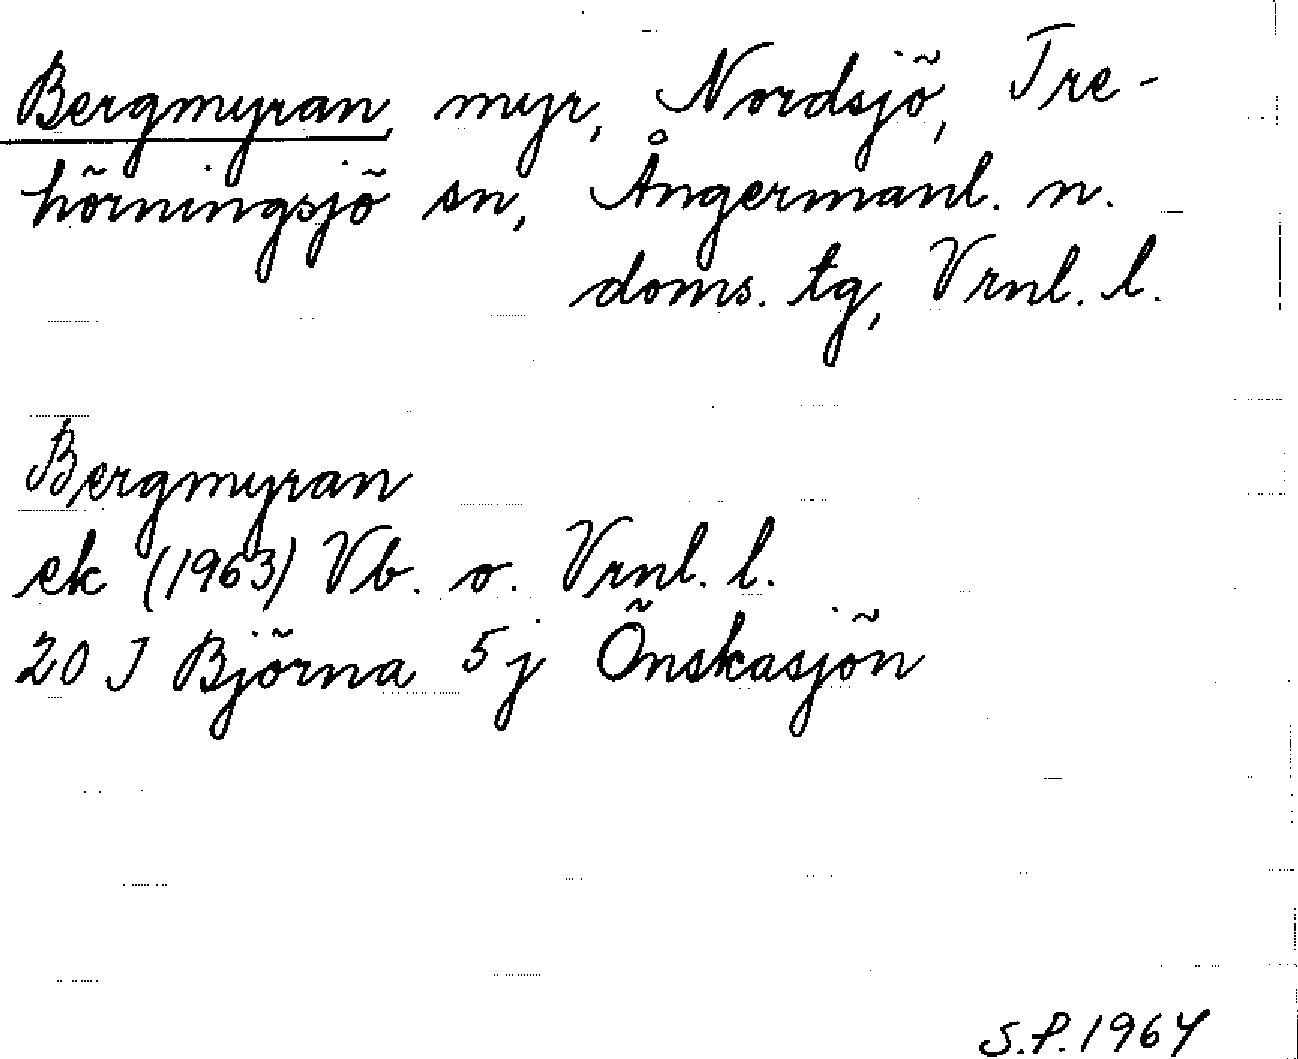 Bergmyran, myr, Nordsjö, Tre-
hörningsjö sn, Ångermanl. n.
doms. tg, Vrnl. l.
Bergmyran
ek (1963) Vb. o. Vrnl. l.
20 I Björna 5 j Önskasjön
S.P. 1964